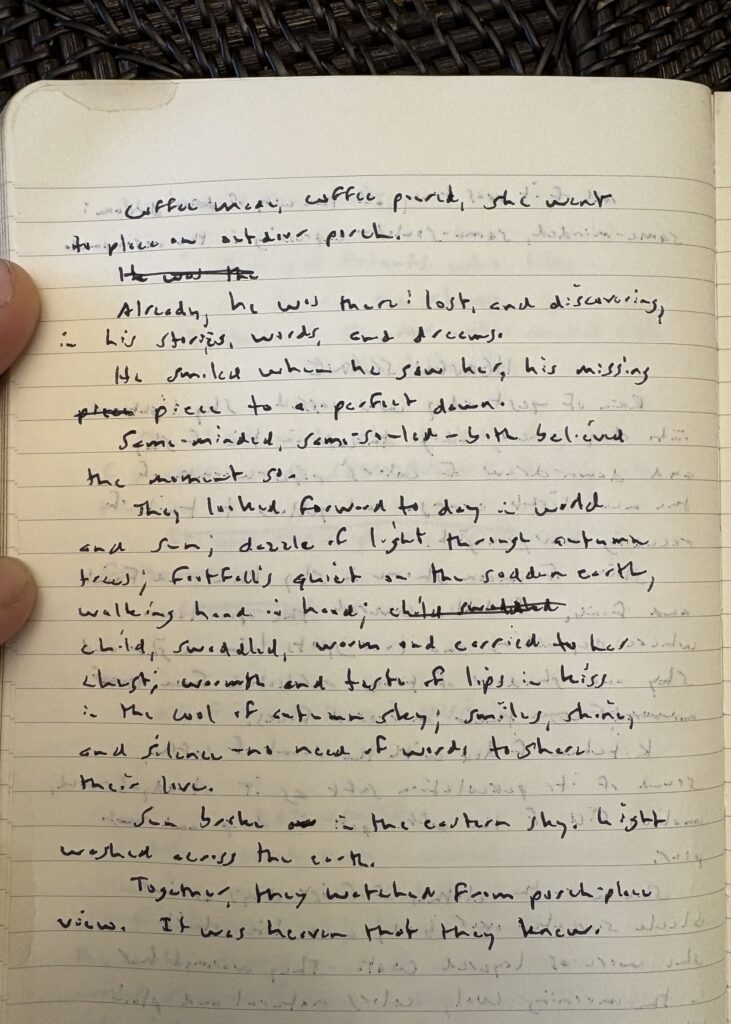 Coffee made, coffee poured, she went
to place on outdoor porch.
He was the
Already, he was there: lost, and discovering,
in his stories, words, and dreams.
He smiled when he saw her, his missing
piece piece to a perfect dawn.
Same-minded, same-souled - both believed
the moment so.
They looked forward to day in world
and sun; dazzle of light through autumn
trees; footfalls quiet on the sodden earth,
walking hand in hand; child swaddled
child, swaddled, warm and carried to her
chest; warmth and taste of lips in kiss
in the cool of autumn sky; smiles, shine,
and silence - no need of words to share
their love.
Sun broke in the eastern sky. Light
washed across the earth.
Together, they watched from porch-place
view. It was heaven that they knew.